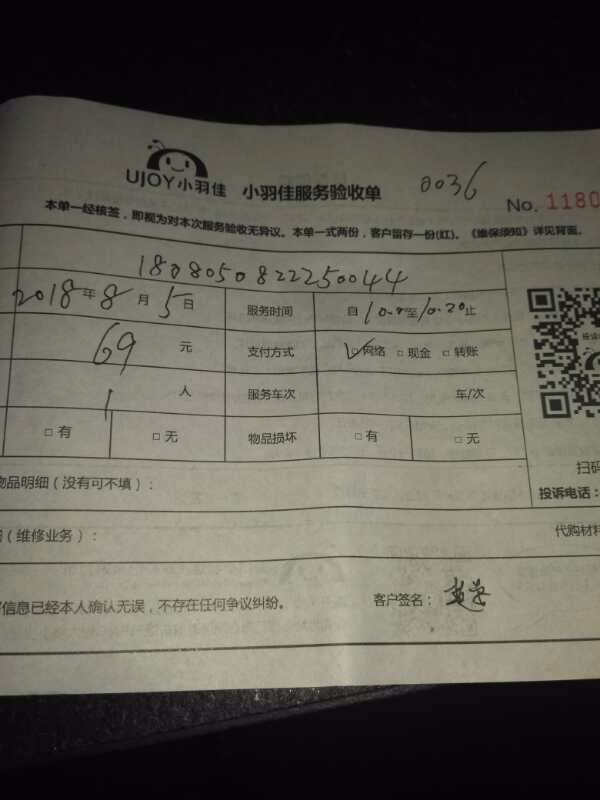 UJOY小羽佳 小羽佳服务验收单 0036 No. 1180
本单一经核签，即视为对本次服务验收无异议。本单一式两份，客户留存一份(红)。《维保须知》详见背面。
1808050822250044
2018年8月5日 服务时间 自10.0至10.20止
69元 支付方式 ☑网络 □现金 □转账
1人 服务车次 车/次
□有 □无 物品损坏 □有 □无
扫码
物品明细（没有可不填）： 投诉电话：
（维修业务）： 代购材料
信息已经本人确认无误，不存在任何争议纠纷。 客户签名：